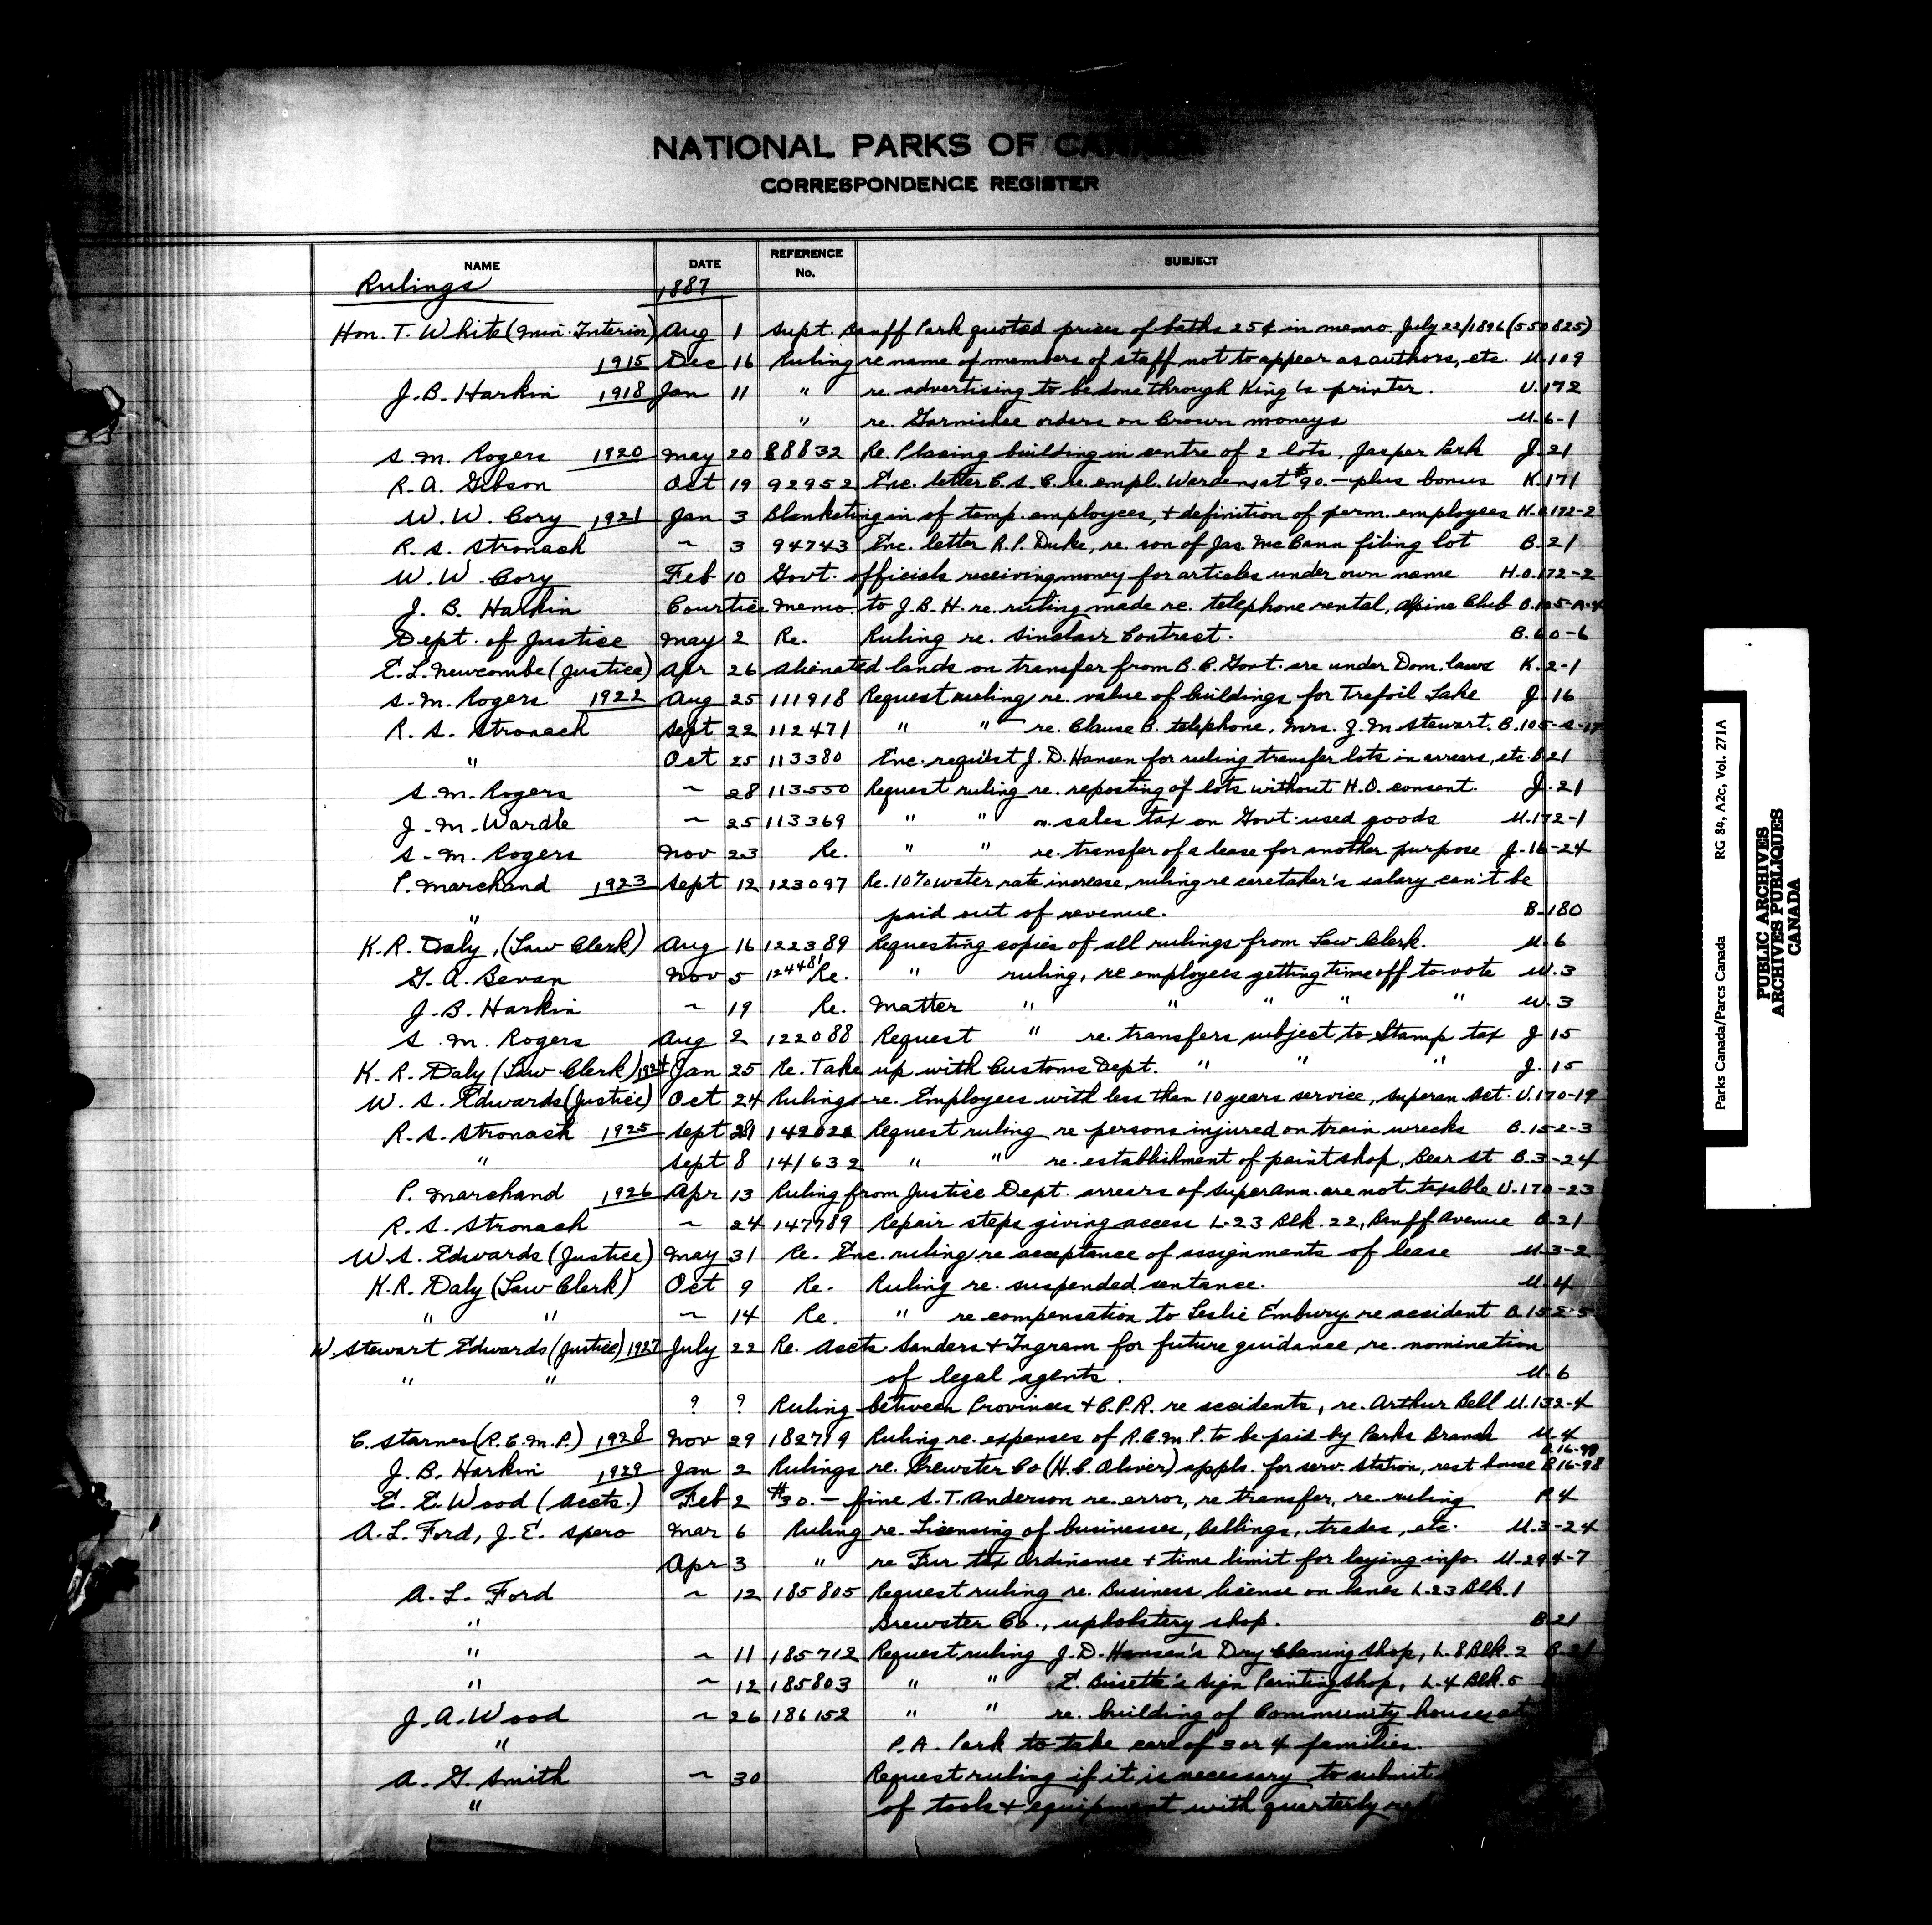 NATIONAL PARKS OF CANADA
CORRESPONDENCE REGISTER
NAME DATE REFERENCE No. SUBJECT
Rulings 1887
Hon. T. White (Min. Interior) Aug 1 Supt. Banff Park quoted prices of baths 25¢ in memo. July 22/1896 (550825)
1915 Dec 16 Ruling re name of members of staff not to appear as authors, etc. U.109
J. B. Harkin 1918 Jan 11 " re. advertising to be done through King's printer. U.172
" re. Garnishee orders on Crown moneys U.6-1
S. M. Rogers 1920 May 20 88832 Re. Placing building in centre of 2 lots, Jasper Park J.21
R. A. Gibson Oct 19 92952 Enc. letter C.S.C. re. empl. Wardens at $90.- plus bonus K.171
W. W. Cory 1921 Jan 3 Blanketing in of temp. employees, + definition of perm. employees H.O.172-2
R. S. Stronach ~ 3 94743 Enc. letter R.P. Duke, re. son of Jas McCann filing lot B.21
W. W. Cory Feb 10 Govt. officials receiving money for articles under own name H.O.172-2
J. B. Harkin Courtice memo. to J.B.H. re. ruling made re. telephone rental, Alpine Club B.105-A-4
Dept. of Justice May 2 Re. Ruling re. Sinclair Contract. B.60-6
E. L. Newcombe (Justice) Apr 26 Alienated lands on transfer from B.C. Govt. are under Dom. laws K.2-1
S. M. Rogers 1922 Aug 25 111918 Request ruling re. value of buildings for Trefoil Lake J.16
R. S. Stronach Sept 22 112471 " " re. Clause B. telephone, Mrs. J. M. Stewart. B.105-S-17
" Oct 25 113380 Enc. request J. D. Hansen for ruling transfer lots in arrears, etc. B.21
S. M. Rogers ~ 28 113550 Request ruling re. reposting of lots without H.O. consent. J.21
J. M. Wardle ~ 25 113369 " " on sales tax on Govt. used goods U.172-1
S. M. Rogers Nov 23 Re. " " re. transfer of a lease for another purpose J.16-24
P. Marchand 1923 Sept 12 123097 Re. 10% water rate increase, ruling re caretaker's salary can't be
" paid out of revenue. B.180
K. R. Daly, (Law Clerk) Aug 16 122389 Requesting copies of all rulings from Law Clerk. U.6
G. A. Bevan Nov 5 124481 Re. " ruling, re employees getting time off to vote W.3
J. B. Harkin ~ 19 Re. Matter " " " " " W.3
S. M. Rogers Aug 2 122088 Request " re. transfers subject to Stamp tax J.15
K. R. Daly (Law Clerk) 1924 Jan 25 Re. Take up with Customs Dept. " " " J.15
W. S. Edwards (Justice) Oct 24 Rulings re. Employees with less than 10 years service, Superan. Act. U.170-19
R. S. Stronach 1925 Sept 21 142022 Request ruling re persons injured on train wrecks B.152-3
" Sept 8 141632 " " re. establishment of paint shop, Bear St B.3-24
P. Marchand 1926 Apr 13 Ruling from Justice Dept. arrears of superann. are not taxable U.170-23
R. S. Stronach ~ 24 147789 Repair steps giving access L.23 Blk. 22, Banff Avenue B.21
W. S. Edwards (Justice) May 31 Re. Enc. ruling re acceptance of assignments of lease U.3-2
K. R. Daly (Law Clerk) Oct 9 Re. Ruling re. suspended sentance. U.4
" " ~ 14 Re. " re compensation to Leslie Embury re accident B.152-5
W. Stewart Edwards (Justice) 1927 July 22 Re. Accts. Sanders + Ingram for future guidance, re. nomination
" " of legal agents. U.6
? ? Ruling between Provinces + C.P.R. re accidents, re. Arthur Bell U.132-4
C. Starnes (R.C.M.P.) 1928 Nov 29 182719 Ruling re. expenses of R.C.M.P. to be paid by Parks Branch U.4
B.16-98
J. B. Harkin 1929 Jan 2 Rulings re. Brewster Co (H.C. Oliver) appls. for serv. station, rest house B.16-98
E. E. Wood (Accts.) Feb 2 $30.- fine S. T. Anderson re. error, re transfer, re. ruling P.4
A. L. Ford, J. E. Spero Mar 6 Ruling re. Licensing of businesses, callings, trades, etc. U.3-24
Apr 3 " re Fur tax Ordinance + time limit for laying info. U.294-7
A. L. Ford ~ 12 185805 Request ruling re. Business license on lanes L.23 Blk. 1
" Brewster Co., upholstery shop. B.21
" ~ 11 185712 Request ruling J. D. Hansen's Dry Cleaning shop, L.8 Blk. 2 B.21
" ~ 12 185803 " " E. Bissette's Sign Painting shop, L.4 Blk. 5
J. A. Wood ~ 26 186152 " " re. building of Community houses at
" P.A. Park to take care of 3 or 4 families.
A. G. Smith ~ 30 Request ruling if it is necessary to submit
" of tools + equipment with quarterly
Parks Canada/Parcs Canada RG 84, A2c, Vol. 271A
PUBLIC ARCHIVES
ARCHIVES PUBLIQUES
CANADA